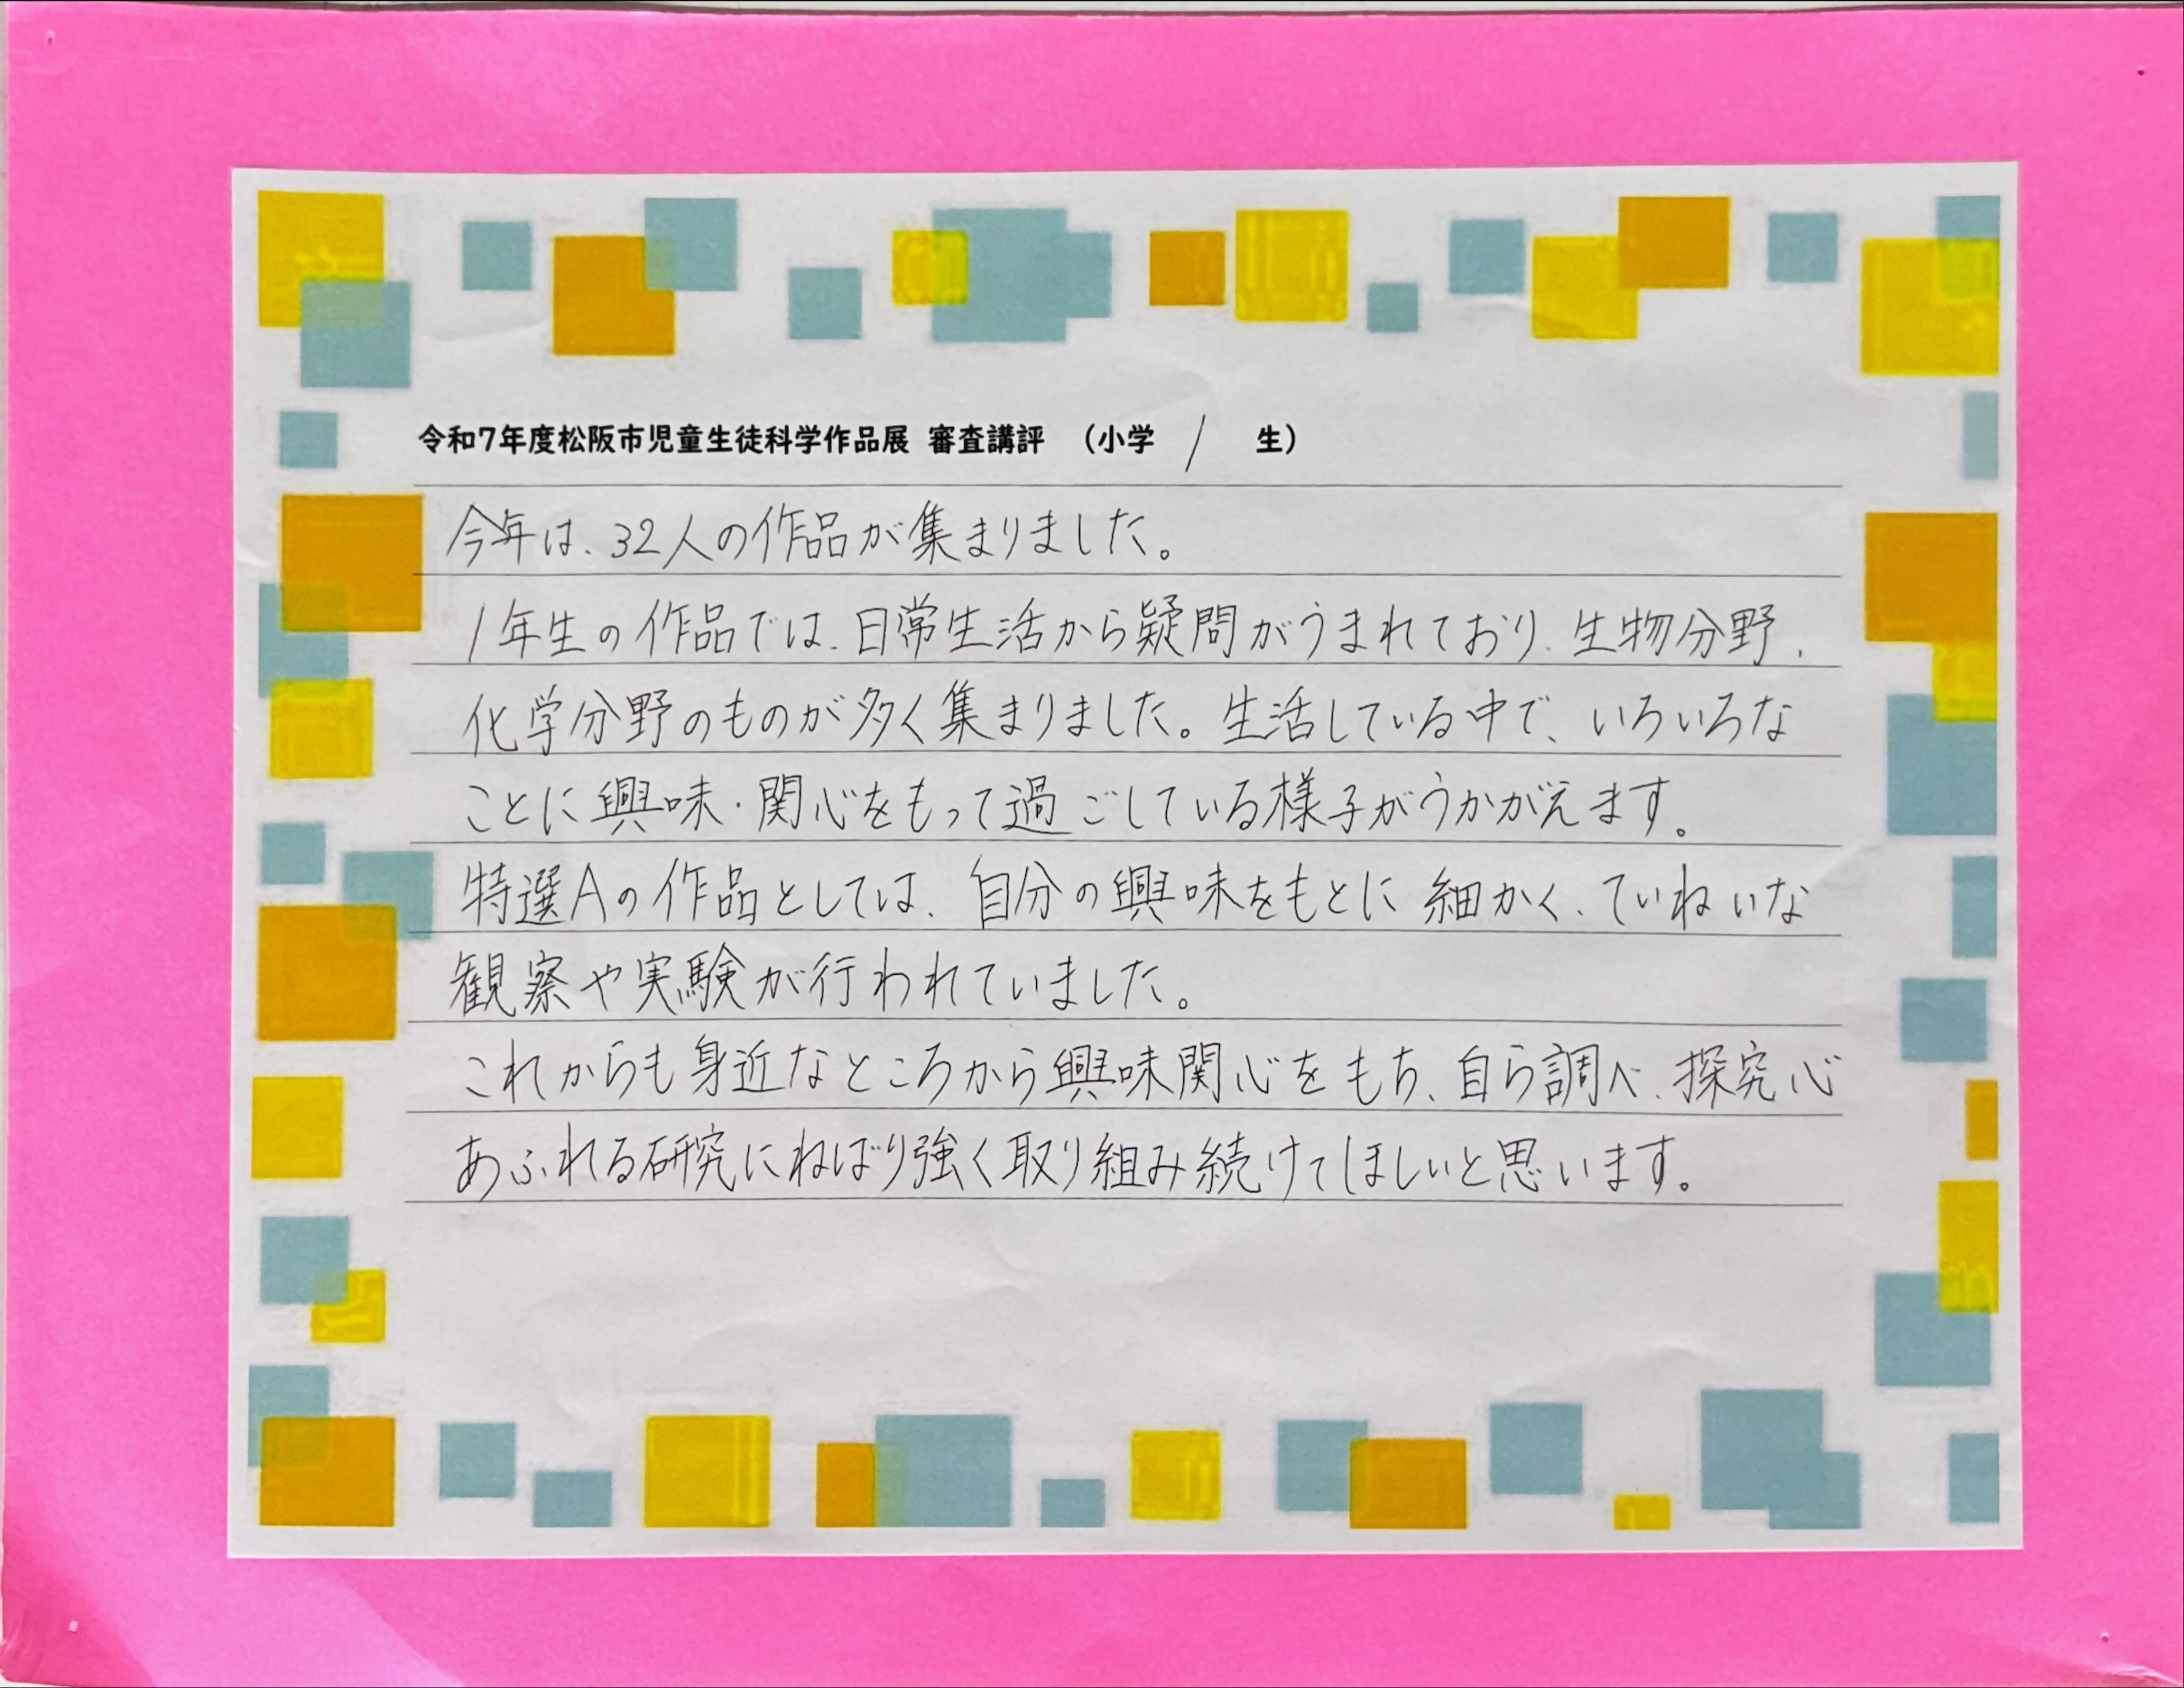 令和7年度松阪市児童生徒科学作品展 審査講評 （小学 1 生）
今年は、32人の作品が集まりました。
1年生の作品では、日常生活から疑問がうまれており、生物分野、
化学分野のものが多く集まりました。生活している中で、いろいろな
ことに興味・関心をもって過ごしている様子がうかがえます。
特選Aの作品としては、自分の興味をもとに細かく、ていねいな
観察や実験が行われていました。
これからも身近なところから興味関心をもち、自ら調べ、探究心
あふれる研究にねばり強く取り組み続けてほしいと思います。